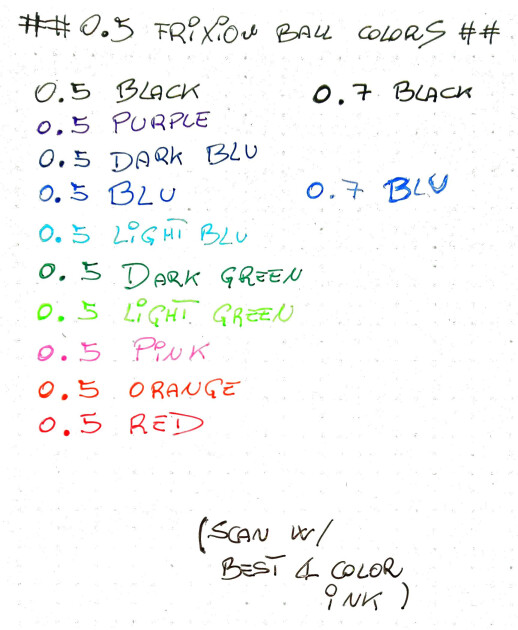 ## 0.5 FRiXiON BALL COLORS ##
0.5 BLACK
0.7 BLACK
0.5 PURPLE
0.5 DARK BLU
0.5 BLU
0.7 BLU
0.5 LiGHT BLU
0.5 DARK GREEN
0.5 LiGHT GREEN
0.5 PiNK
0.5 ORANGE
0.5 RED
(SCAN W/
BEST 4 COLOR
iNK)